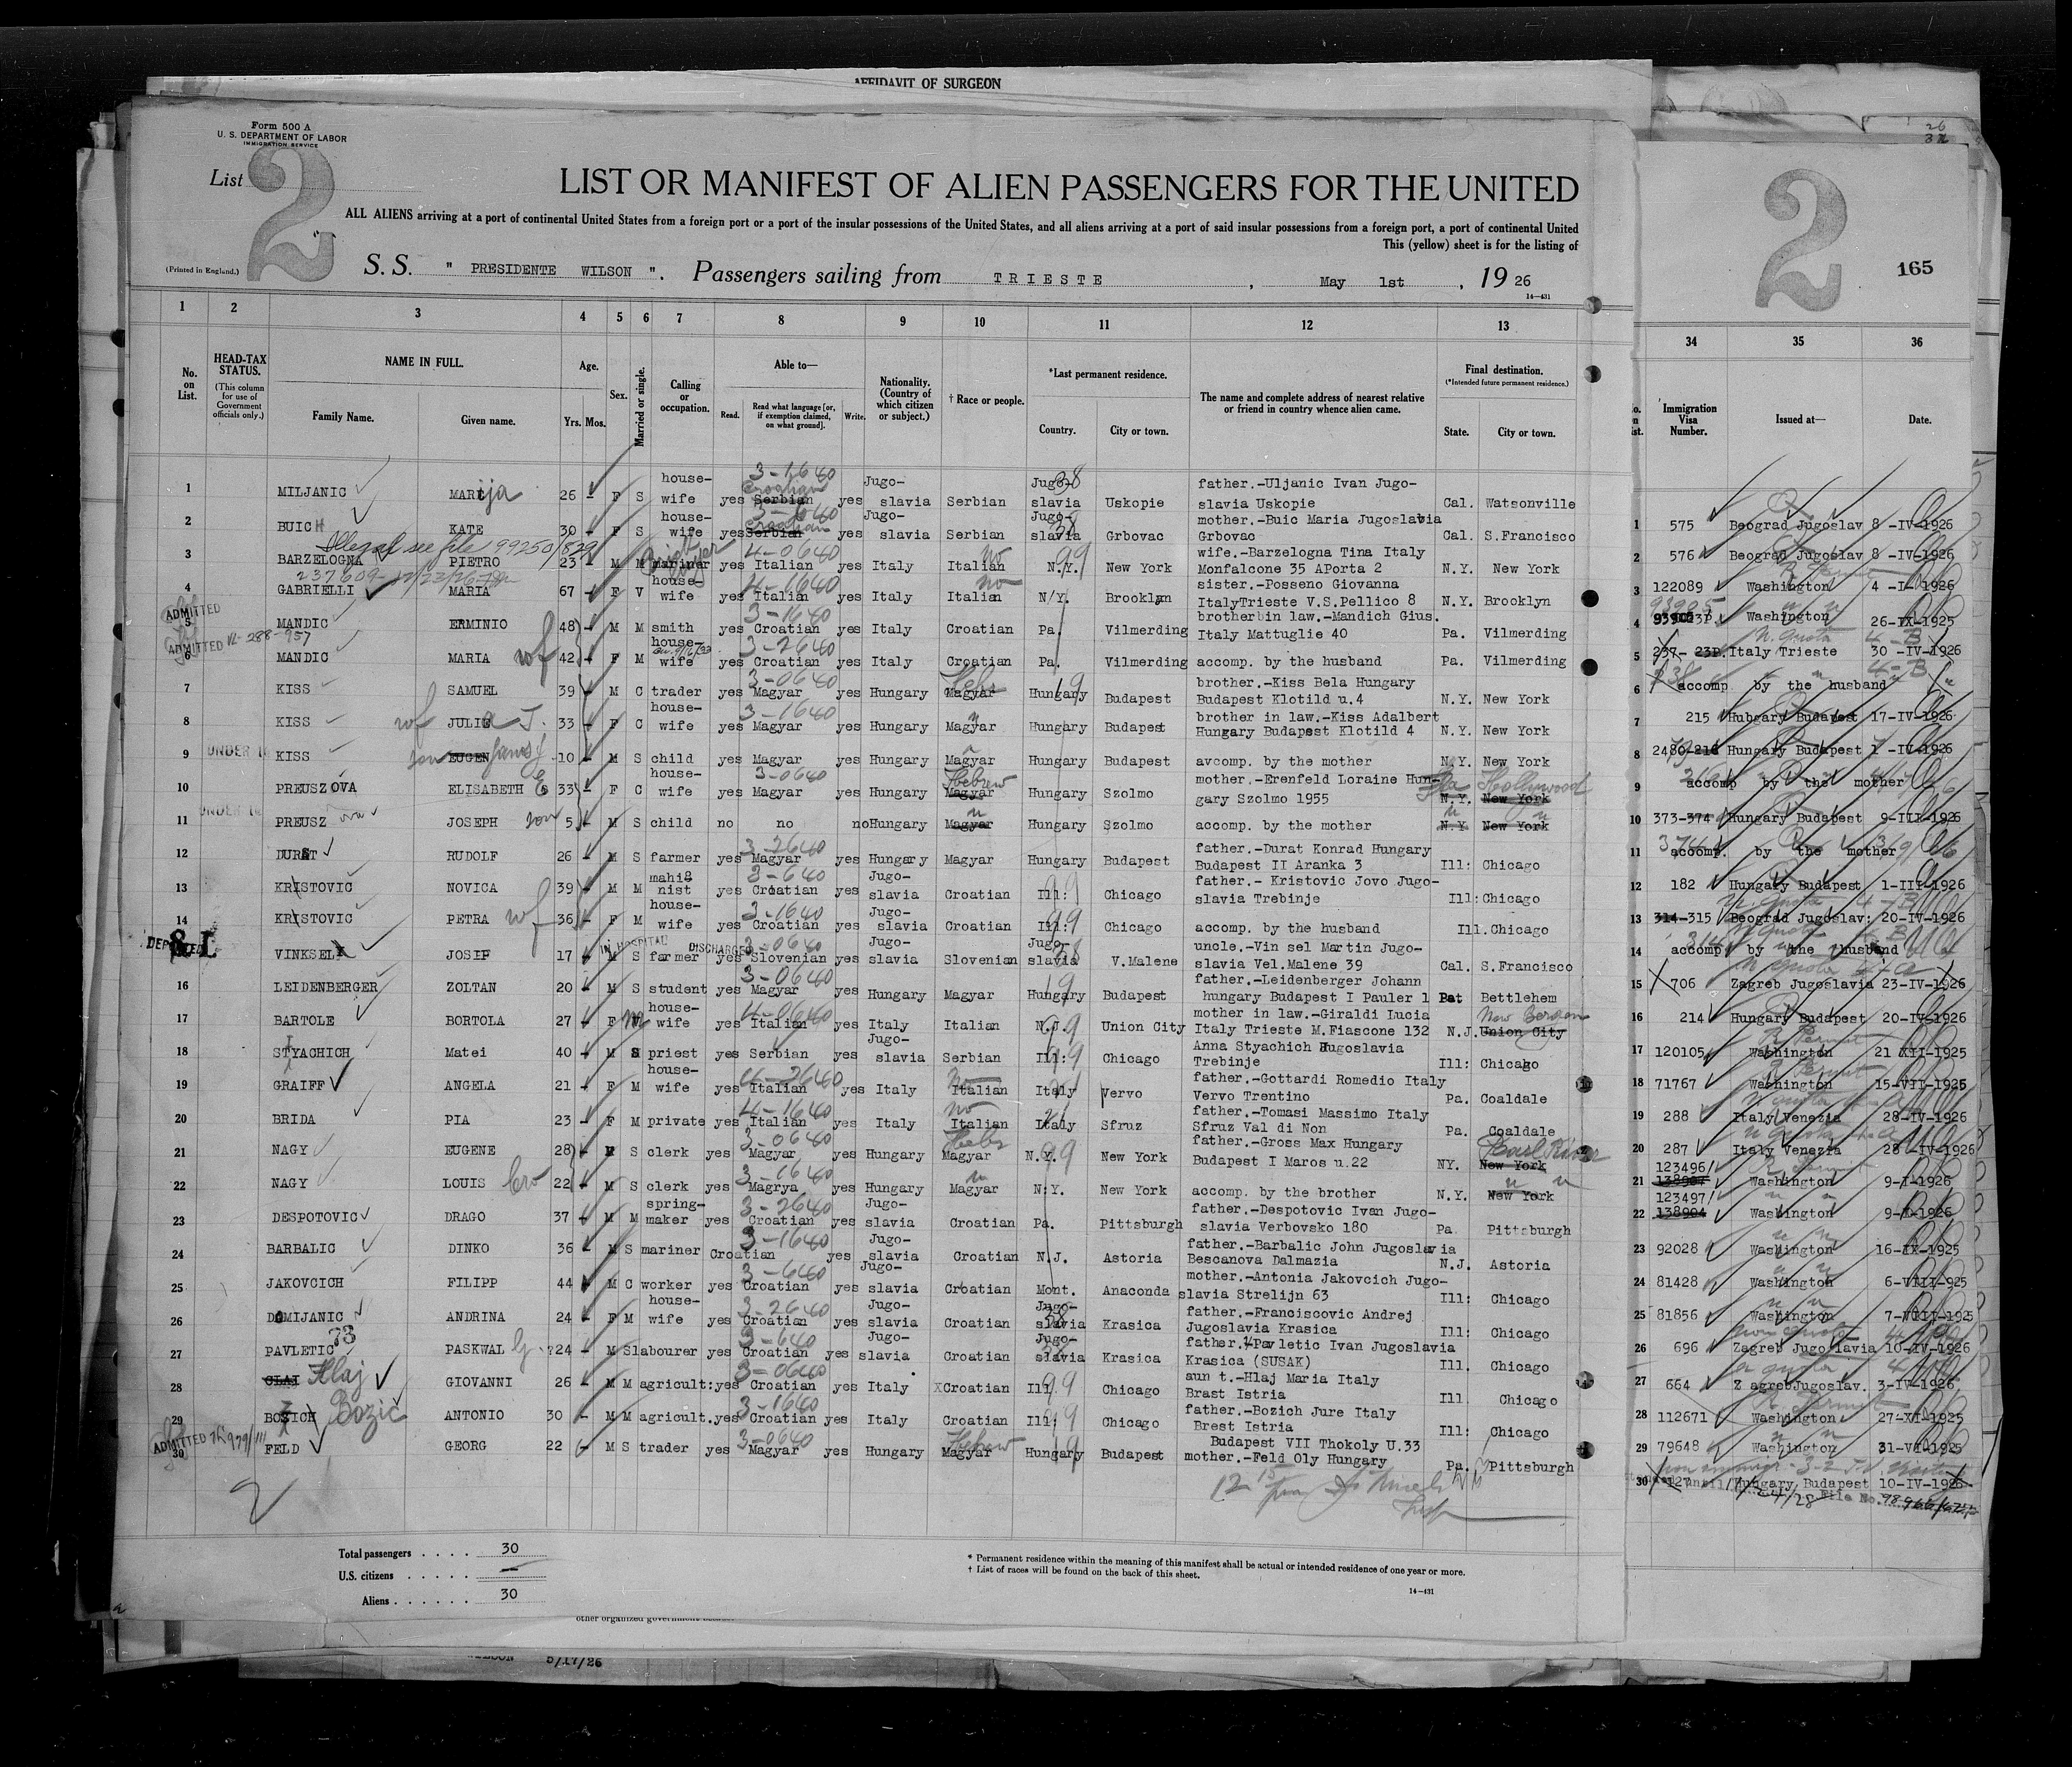 AFFIDAVIT OF SURGEON
Form 500 A
U. S. DEPARTMENT OF LABOR
IMMIGRATION SERVICE
List 2
LIST OR MANIFEST OF ALIEN PASSENGERS FOR THE UNITED
ALL ALIENS arriving at a port of continental United States from a foreign port or a port of the insular possessions of the United States, and all aliens arriving at a port of said insular possessions from a foreign port, a port of continental United
This (yellow) sheet is for the listing of
(Printed in England.)
S. S. " PRESIDENTE WILSON ". Passengers sailing from TRIESTE , May 1st , 19 26
14—431
2
165
1 2 3 4 5 6 7 8 9 10 11 12 13 34 35 36
No. on List.
HEAD-TAX STATUS. (This column for use of Government officials only.)
NAME IN FULL.
Family Name. Given name.
Age. Yrs. Mos.
Sex.
Married or single.
Calling or occupation.
Able to—
Read. Read what language [or, if exemption claimed, on what ground]. Write.
Nationality. (Country of which citizen or subject.)
† Race or people.
*Last permanent residence.
Country. City or town.
The name and complete address of nearest relative or friend in country whence alien came.
Final destination.
(*Intended future permanent residence.)
State. City or town.
Immigration Visa Number. Issued at— Date.
1 MILJANIC MARija 26 F S house-wife yes Croatian Serbian yes Jugo-slavia Serbian Jugo-slavia Uskopie father.-Uljanic Ivan Jugo-slavia Uskopie Cal. Watsonville
2 BUICH KATE 30 F S house-wife yes Croatian Serbian yes Jugo-slavia Serbian Jugo-slavia Grbovac mother.-Buic Maria Jugoslavia Grbovac Cal. S.Francisco
Illegal see file 99250/829
3 BARZELOGNA PIETRO 23 M M mariner yes Italian yes Italy Italian N.Y. New York wife.-Barzelogna Tina Italy Monfalcone 35 APorta 2 N.Y. New York
4 GABRIELLI MARIA 67 F V house-wife yes Italian yes Italy Italian N/Y. Brooklyn sister.-Posseno Giovanna ItalyTrieste V.S.Pellico 8 N.Y. Brooklyn
ADMITTED
5 MANDIC ERMINIO 48 M M smith yes Croatian yes Italy Croatian Pa. Vilmerding brotherbin law.-Mandich Gius. Italy Mattuglie 40 Pa. Vilmerding
ADMITTED
6 MANDIC MARIA wf 42 F M house-wife yes Croatian yes Italy Croatian Pa. Vilmerding accomp. by the husband Pa. Vilmerding
7 KISS SAMUEL 39 M C trader yes Magyar yes Hungary Magyar Hungary Budapest brother.-Kiss Bela Hungary Budapest Klotild u.4 N.Y. New York
8 KISS wf JULIa J. 33 F C house-wife yes Magyar yes Hungary Magyar Hungary Budapest brother in law.-Kiss Adalbert Hungary Budapest Klotild 4 N.Y. New York
9 KISS son EUGEN 10 M S child yes Magyar yes Hungary Magyar Hungary Budapest avcomp. by the mother N.Y. New York
10 PREUSZOVA ELISABETH 33 F C house-wife yes Magyar yes Hungary Hebrew Magyar Hungary Szolmo mother.-Erenfeld Loraine Hungary Szolmo 1955 N.Y. New York Hollywood
11 PREUSZ ova JOSEPH son 5 M S child no no no Hungary Magyar Hungary Szolmo accomp. by the mother N.Y. New York
12 DURAT RUDOLF 26 M S farmer yes Magyar yes Hungary Magyar Hungary Budapest father.-Durat Konrad Hungary Budapest II Aranka 3 Ill: Chicago
13 KRISTOVIC NOVICA 39 M M mahinist yes Croatian yes Jugo-slavia Croatian Ill: Chicago father.- Kristovic Jovo Jugo-slavia Trebinje Ill: Chicago
14 KRISTOVIC PETRA wf 36 F M house-wife yes Croatian yes Jugo-slavia Croatian Ill: Chicago accomp. by the husband Ill. Chicago
DEPORTED S.I. IN HOSPITAL DISCHARGED
VINKSEL JOSIP 17 M S farmer yes Slovenian yes Jugo-slavia Slovenian Jugo-slavia V.Malene uncle.-Vin sel Martin Jugo-slavia Vel.Malene 39 Cal. S.Francisco
16 LEIDENBERGER ZOLTAN 20 M S student yes Magyar yes Hungary Magyar Hungary Budapest father.-Leidenberger Johann hungary Budapest I Pauler 1 Pat Bettlehem
17 BARTOLE BORTOLA 27 F M house-wife yes Italian yes Italy Italian N.J. Union City mother in law.-Giraldi Lucia Italy Trieste M.Fiascone 132 N.J. Union City
18 STYACHICH Matei 40 M S priest yes Serbian yes Jugo-slavia Serbian Ill: Chicago Anna Styachich Jugoslavia Trebinje Ill: Chicago
19 GRAIFF ANGELA 21 F M house-wife yes Italian yes Italy Italian Italy Vervo father.-Gottardi Romedio Italy Vervo Trentino Pa. Coaldale
20 BRIDA PIA 23 F M private yes Italian yes Italy Italian Italy Sfruz father.-Tomasi Massimo Italy Sfruz Val di Non Pa. Coaldale
21 NAGY EUGENE 28 M S clerk yes Magyar yes Hungary Magyar N.Y. New York father.-Gross Max Hungary Budapest I Maros u.22 NY. New York
22 NAGY LOUIS bro 22 M S clerk yes Magrya yes Hungary Magyar N.Y. New York accomp. by the brother N.Y. New York
23 DESPOTOVIC DRAGO 37 M M spring-maker yes Croatian yes Jugo-slavia Croatian Pa. Pittsburgh father.-Despotovic Ivan Jugo-slavia Verbovsko 180 Pa. Pittsburgh
24 BARBALIC DINKO 36 M S mariner Croatian yes Jugo-slavia Croatian N.J. Astoria father.-Barbalic John Jugoslavia Bescanova Dalmazia N.J. Astoria
25 JAKOVCICH FILIPP 44 M C worker yes Croatian yes Jugo-slavia Croatian Mont. Anaconda mother.-Antonia Jakovcich Jugo-slavia Strelijn 63 Ill: Chicago
26 DOMIJANIC ANDRINA 24 F M house-wife yes Croatian yes Jugo-slavia Croatian Jugo-slavia Krasica father.-Franciscovic Andrej Jugoslavia Krasica Ill: Chicago
27 PAVLETIC PASKWAL 24 M S labourer yes Croatian yes Jugo-slavia Croatian Jugo-slavia Krasica father.-Pavletic Ivan Jugoslavia Krasica (SUSAK) Ill. Chicago
28 CLAI Hlaj GIOVANNI 26 M M agricult: yes Croatian yes Italy Croatian Ill Chicago aun t.-Hlaj Maria Italy Brast Istria Ill Chicago
29 BOZICH Bozic ANTONIO 30 M M agricult. yes Croatian yes Italy Croatian Ill: Chicago father.-Bozich Jure Italy Brest Istria Ill: Chicago
ADMITTED
30 FELD GEORG 22 M S trader yes Magyar yes Hungary Hebrew Magyar Hungary Budapest Budapest VII Thokoly U.33 mother.-Feld Oly Hungary Pa. Pittsburgh
1 575 Beograd Jugoslav 8 -IV-1926
2 576 Beograd Jugoslav 8 -IV-1926
3 122089 Washington 4 -I-1926
4 Washington 26-IX-1925
5 237- 23P. Italy Trieste 30 -IV-1926
6 accomp. by the husband
7 215 Hubgary Budapest 17-IV-1926
8 Hungary Budapest 1 -IV-1926
9 accomp by the mother
10 373-374 Hungary Budapest 9-III-1926
11 accomp. by the mother
12 182 Hungary Budapest 1-III-1926
13 314-315 Beograd Jugoslav: 20-IV-1926
14 accomp by the husband
15 706 Zagreb Jugoslavia 23-IV-1926
16 214 Hungary Budapest 20-IV-1926
17 120105 Washington 21 XII-1925
18 71767 Washington 15-VII-1925
19 288 Italy Venezia 28-IV-1926
20 287 Italy Venezia 28 -IV-1926
21 123496 138907 Washington 9-I-1926
22 123497 138904 Washington 9-I-1926
23 92028 Washington 16-IX-1925
24 81428 Washington 6-VIII-925
25 81856 Washington 7-VIII-1925
26 696 Zagreb Jugoslavia 10-IV-1926
27 664 Z agrebJugoslav. 3-IV-1926
28 112671 Washington 27-XI-1925
29 79648 Washington 31-VI-1925
30 127 Hungary Budapest 10-IV-1926
File No. 98966
2
Total passengers . . . . 30
U.S. citizens . . . . . . —
Aliens . . . . . . 30
* Permanent residence within the meaning of this manifest shall be actual or intended residence of one year or more.
† List of races will be found on the back of this sheet.
14—431
WILSON 5/17/26